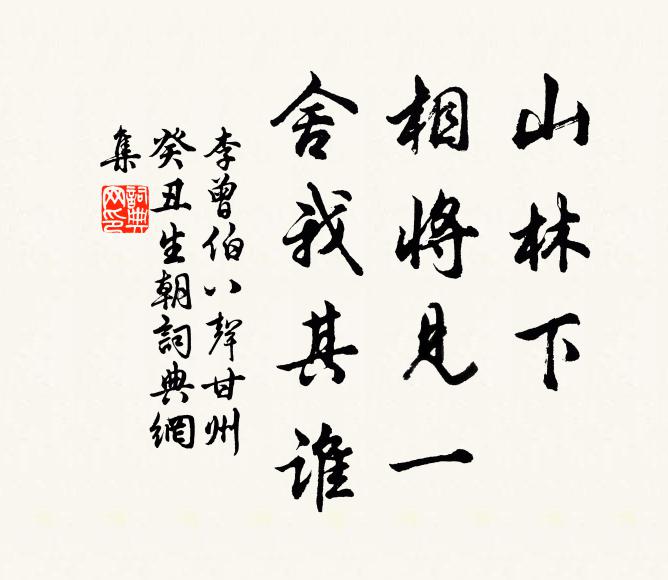 山林下
相將見一
舍我其誰
李曾伯八聲甘州
癸丑生朝詞典網
集
詞典網印